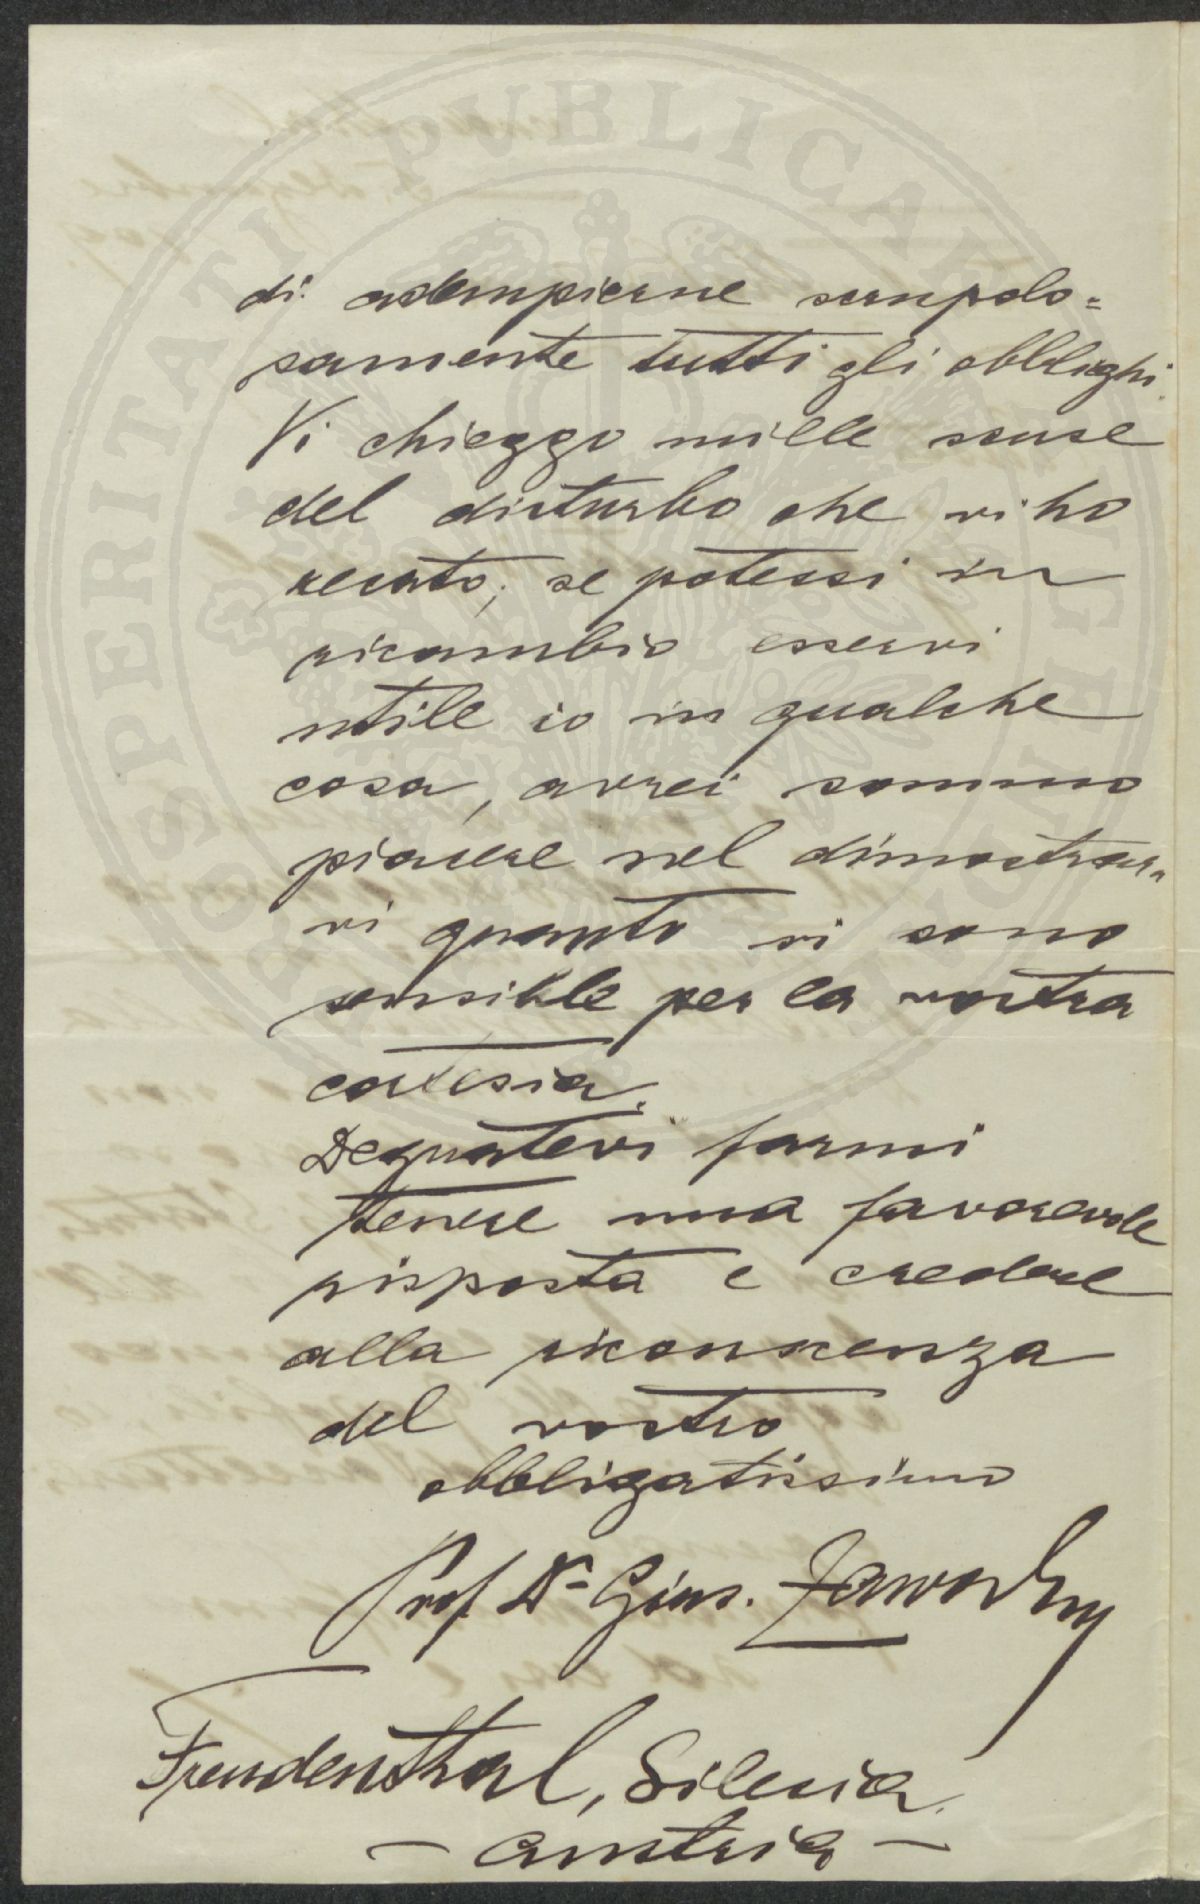 di adempierne scrupolo=
samente tutti gli obblighi.
Vi chieggo mille scuse
del disturbo che vi ho
recato; se potessi in
ricambio esservi
utile io in qualche
cosa, avrei sommo
piacere nel dimostrar=
vi quanto vi sono
sensibile per la vostra
cortesia.
Degnatevi farmi
tenere una favorevole
risposta e credere
alla riconoscenza
del vostro
obbligatissimo
Prof. Dr. Gius. Zawodny
Freudenthal, Silesia.
- Austria -
PROSPERITATI PVBLICAE AVGENDAE